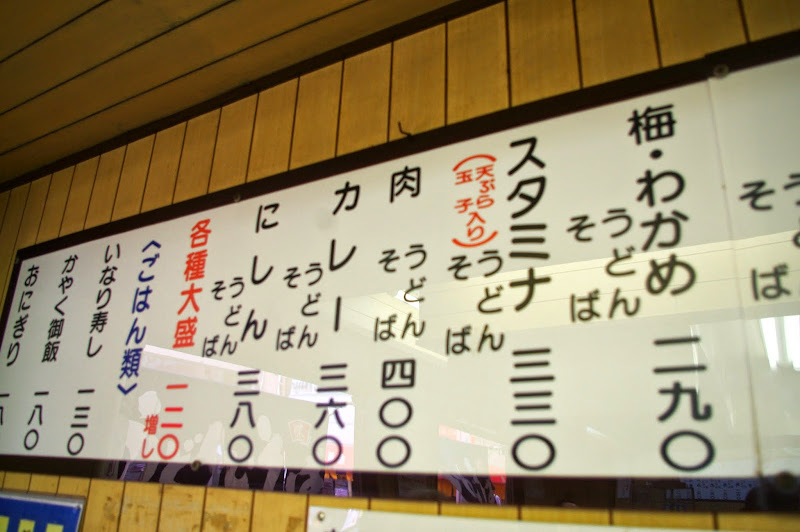 うどん
そば
梅・わかめ
うどん
そば
二九〇
スタミナ
(天ぷら入り)
(玉子)
うどん
そば
三三〇
肉
うどん
そば
四〇〇
カレー
うどん
そば
三六〇
にしん
うどん
そば
三八〇
各種大盛
一二〇
増し
〈ごはん類〉
いなり寿し
一三〇
かやく御飯
一八〇
おにぎり